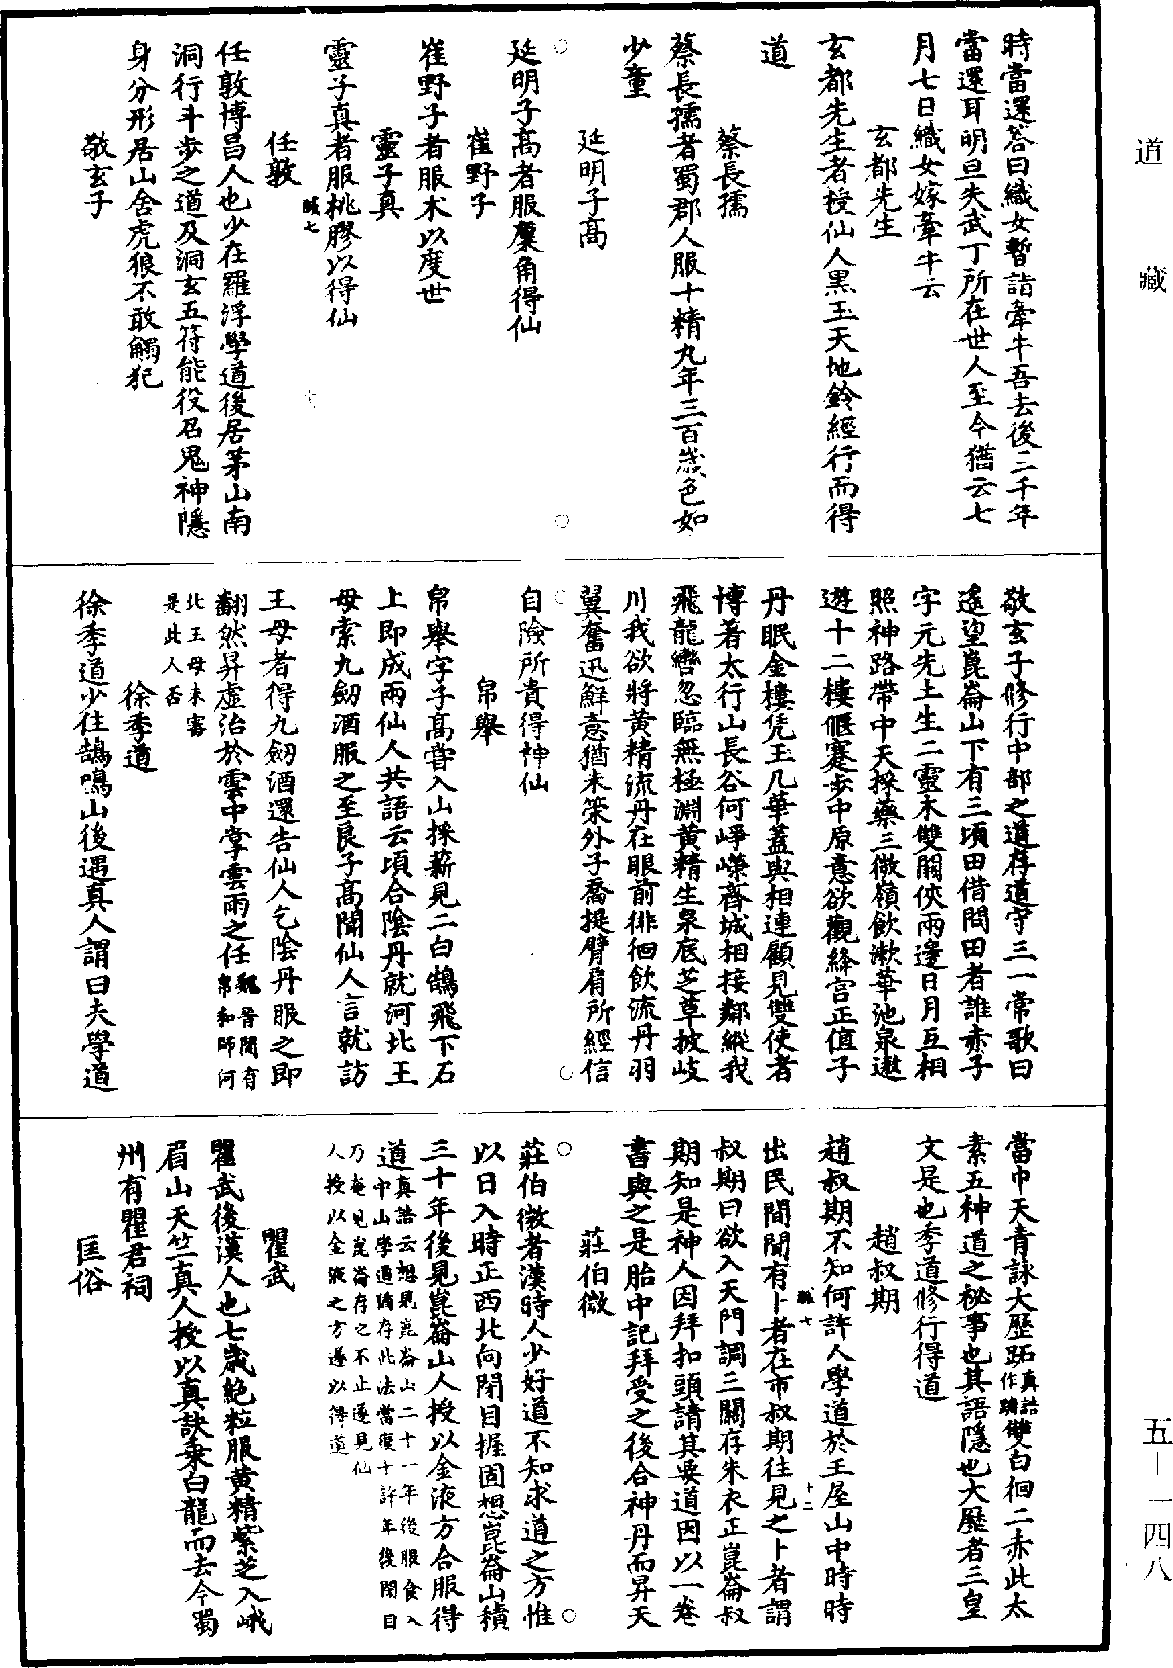 道藏
五—一四八
時當還荅曰織女暫詣牽牛吾去後三千年
當還耳明旦失武丁所在世人至今猶云七
月七日織女嫁牽牛云
玄都先生
玄都先生者授仙人黑玉天地鈴經行而得
道
蔡長孺
蔡長孺者蜀郡人服十精丸年三百歲色如
少童
延明子高
延明子高者服麋角得仙
崔野子
崔野子者服朮以度世
靈子真
靈子真者服桃膠以得仙
任敦
任敦博昌人也少在羅浮學道後居茅山南
洞行斗步之道及洞玄五符能役召鬼神隱
身分形居山舍虎狼不敢觸犯
敬玄子
敬玄子修行中部之道存道守三一常歌曰
遙望崑崙山下有三頃田借問田者誰赤子
字元先上生二靈木雙闕俠兩邊日月互相
照神路帶中天採藥三微嶺飲漱華池泉遨
遊十二樓偃蹇步中原意欲觀絳宮正值子
丹眠金樓凭玉几華蓋與相連顧見雙使者
博著太行山長谷何崢嶸齊城相接鄰縱我
飛龍轡忽臨無極淵黃精生泉底芝草披岐
川我欲將黃精流丹在眼前徘徊飲流丹羽
翼奮迅鮮意猶未筞外子喬提臂肩所經信
自險所貴得神仙
帛舉
帛舉字子高嘗入山採薪見二白鵠飛下石
上即成兩仙人共語云頃合陰丹就河北王
母索九劒酒服之至良子高聞仙人言就訪
王母者得九劒酒還告仙人乞陰丹服之即
翻然昇虛治於雲中掌雲雨之任魏晉間有帛和師何
北王母未審是此人否
徐季道
徐季道少住鵠鳴山後遇真人謂曰夫學道
當巾天青詠大歷跖真誥作蹠雙白徊二赤此太
素五神道之秘事也其語隱也大歷者三皇
文是也季道修行得道
趙叔期
趙叔期不知何許人學道於王屋山中時時
出民間聞有卜者在市叔期往見之卜者謂
叔期曰欲入天門調三關存朱衣正崑崙叔
期知是神人因拜扣頭請其要道因以一卷
書與之是胎中記拜受之後合神丹而昇天
莊伯微
莊伯微者漢時人少好道不知求道之方惟
以日入時正西北向閉目握固想崑崙山積
三十年後見崑崙山人授以金液方合服得
道真誥云想見崑崙山二十一年後服食入中山學道猶存此法當復十許年後閉目
乃奄見崑崙存之不止遂見仙人授以金液之方遂以得道
瞿武
瞿武後漢人也七歲絕粒服黃精紫芝入峨
眉山天竺真人授以真訣乘白龍而去今蜀
州有瞿君祠
匡俗